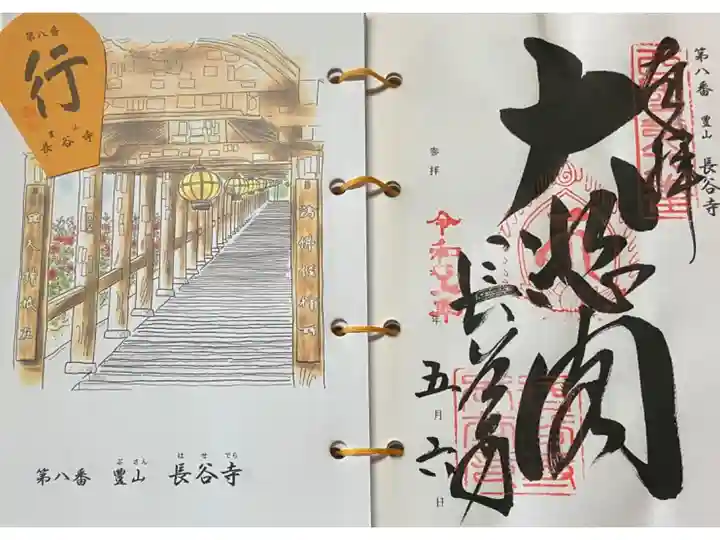 第八番
行
豊山
長谷寺
ぶさん はせでら
第八番 豊山 長谷寺
第八番 豊山 長谷寺
奉拝
大悲閣
長谷寺
参拝 令和元年 五月六日